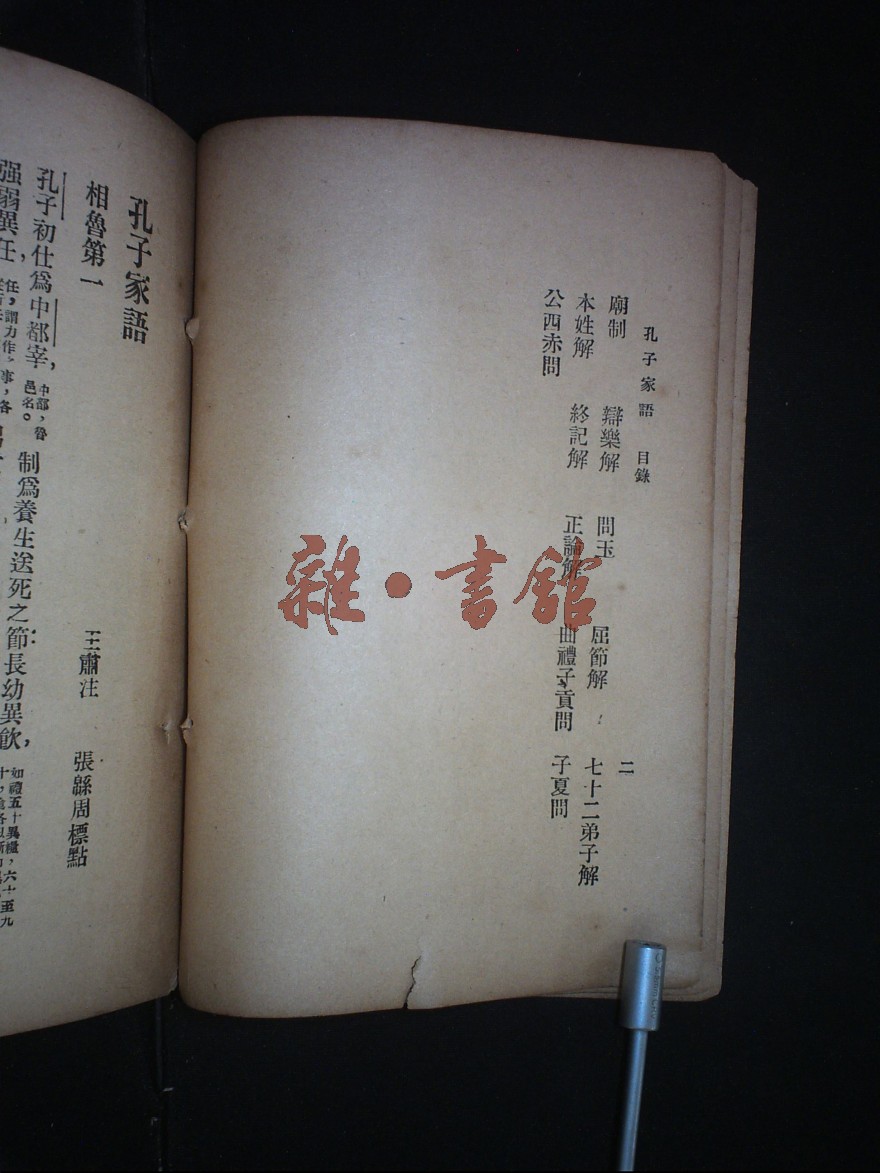 孔子家語 目錄 二
廟制 辯樂解 問玉 屈節解 七十二弟子解
本姓解 終記解 正論解 曲禮子貢問 子夏問
公西赤問
雜·書館
孔子家語
相魯第一 王肅注 張緜周標點
孔子初仕爲中都宰,中都,魯邑名。制爲養生送死之節:長幼異飮,如禮五十異糧,六十至九
強弱異任,任,謂力作之事,各